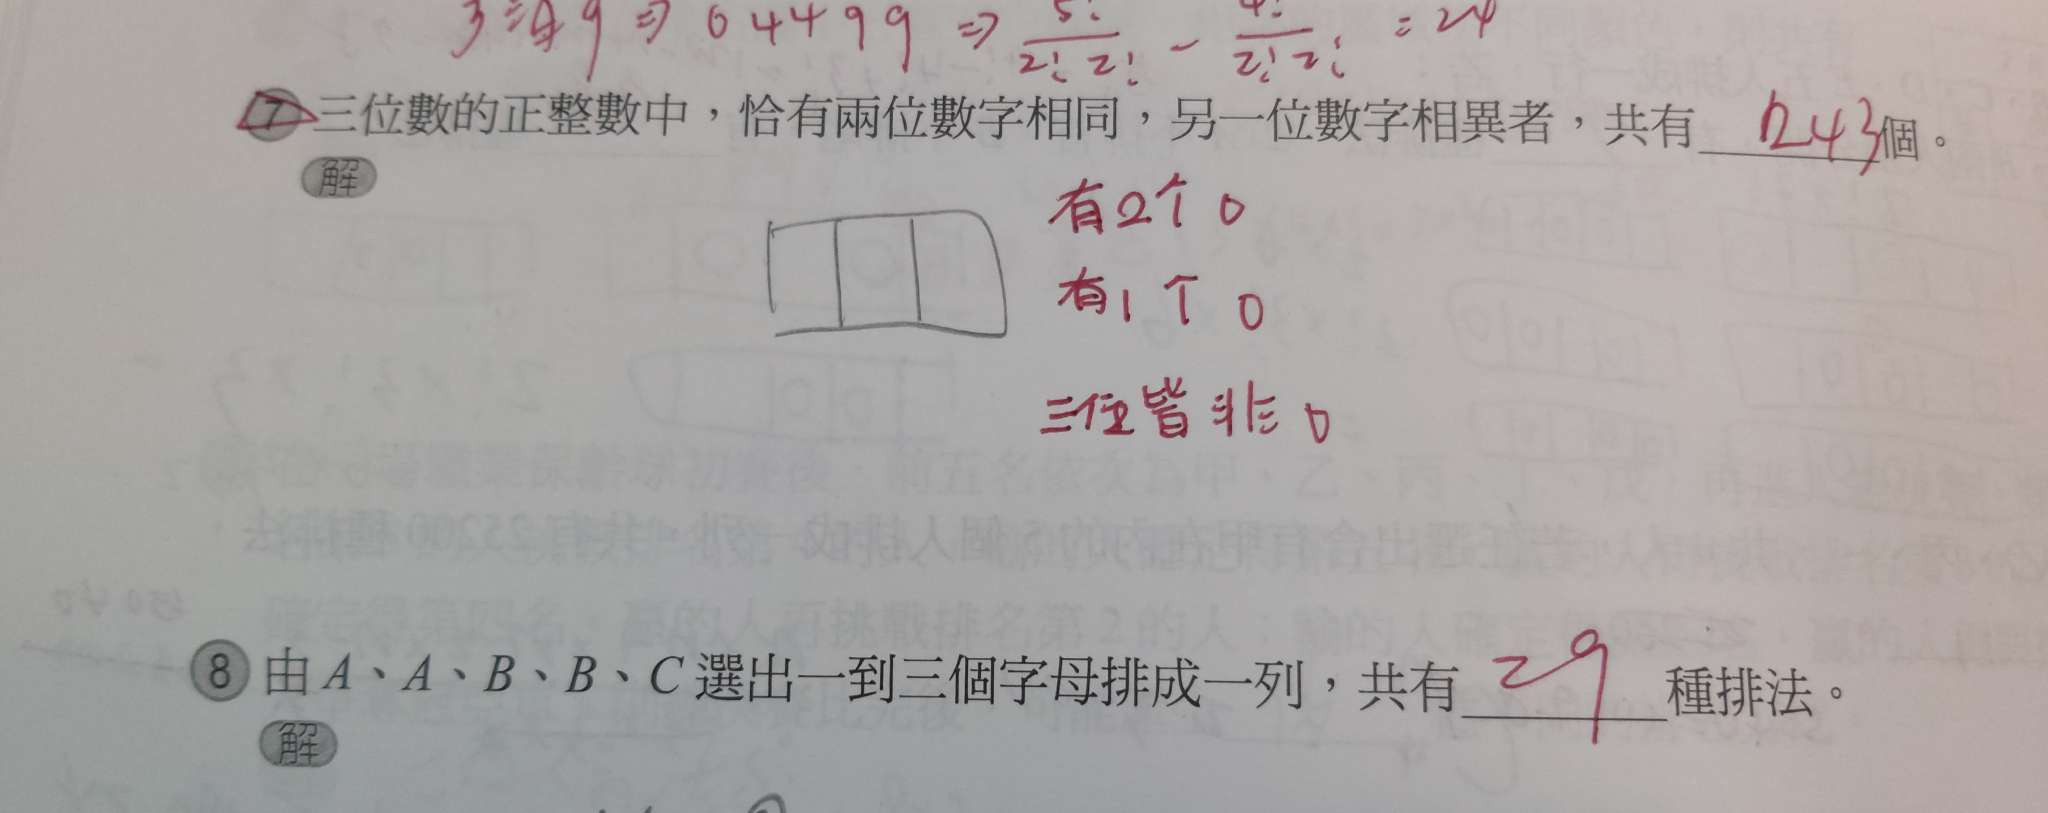 ⇒ 04499 ⇒ 5!/2!2! - 4!/2!2! = 24
7 三位數的正整數中，恰有兩位數字相同，另一位數字相異者，共有 243 個。
解
有2个0
有1个0
三位皆非0
8 由A、A、B、B、C選出一到三個字母排成一列，共有 29 種排法。
解